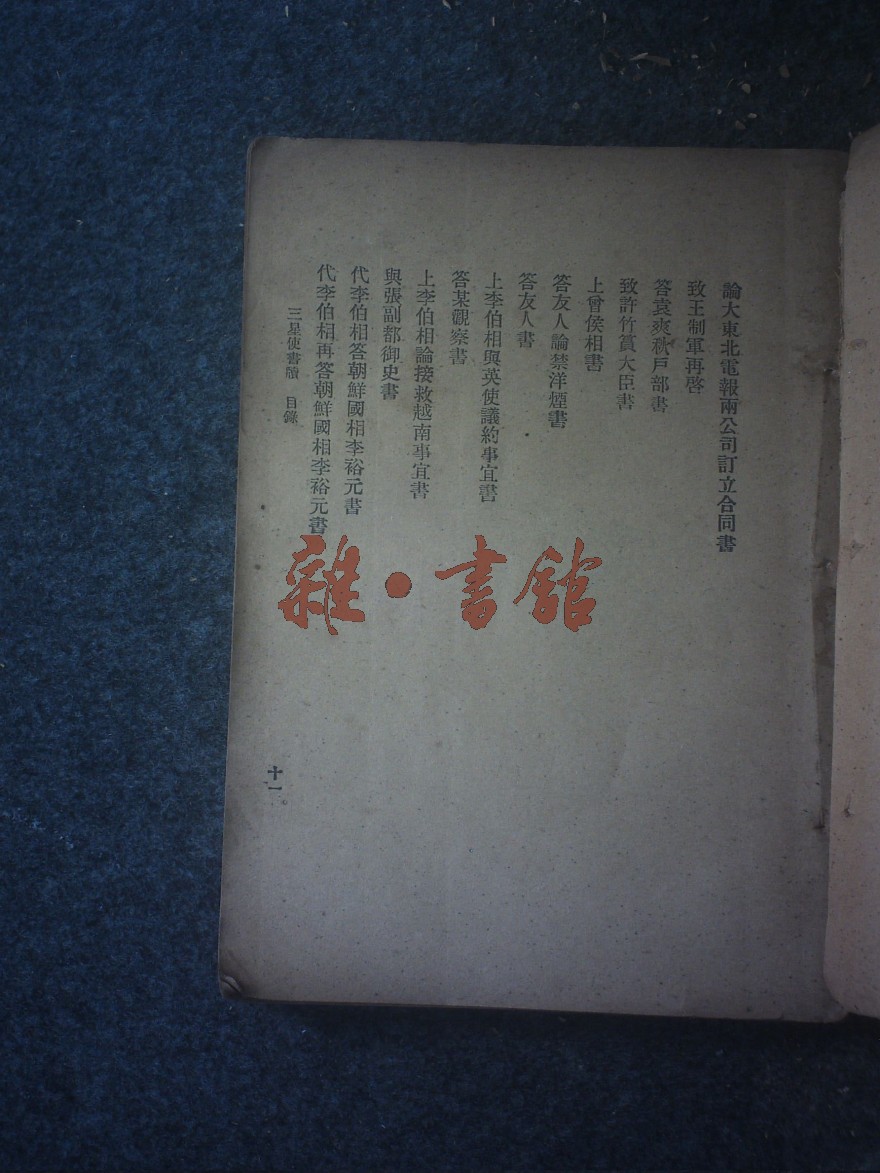 論大東北電報兩公司訂立合同書
致王制軍再啓
答袁爽秋戶部書
致許竹篔大臣書
上曾侯相書
答友人論禁洋煙書
答友人書
上李伯相與英使議約事宜書
答某觀察書
上李伯相論接救越南事宜書
與張副都御史書
代李伯相答朝鮮國相李裕元書
代李伯相再答朝鮮國相李裕元書
三星使書牘 目錄
十一
雜·書館